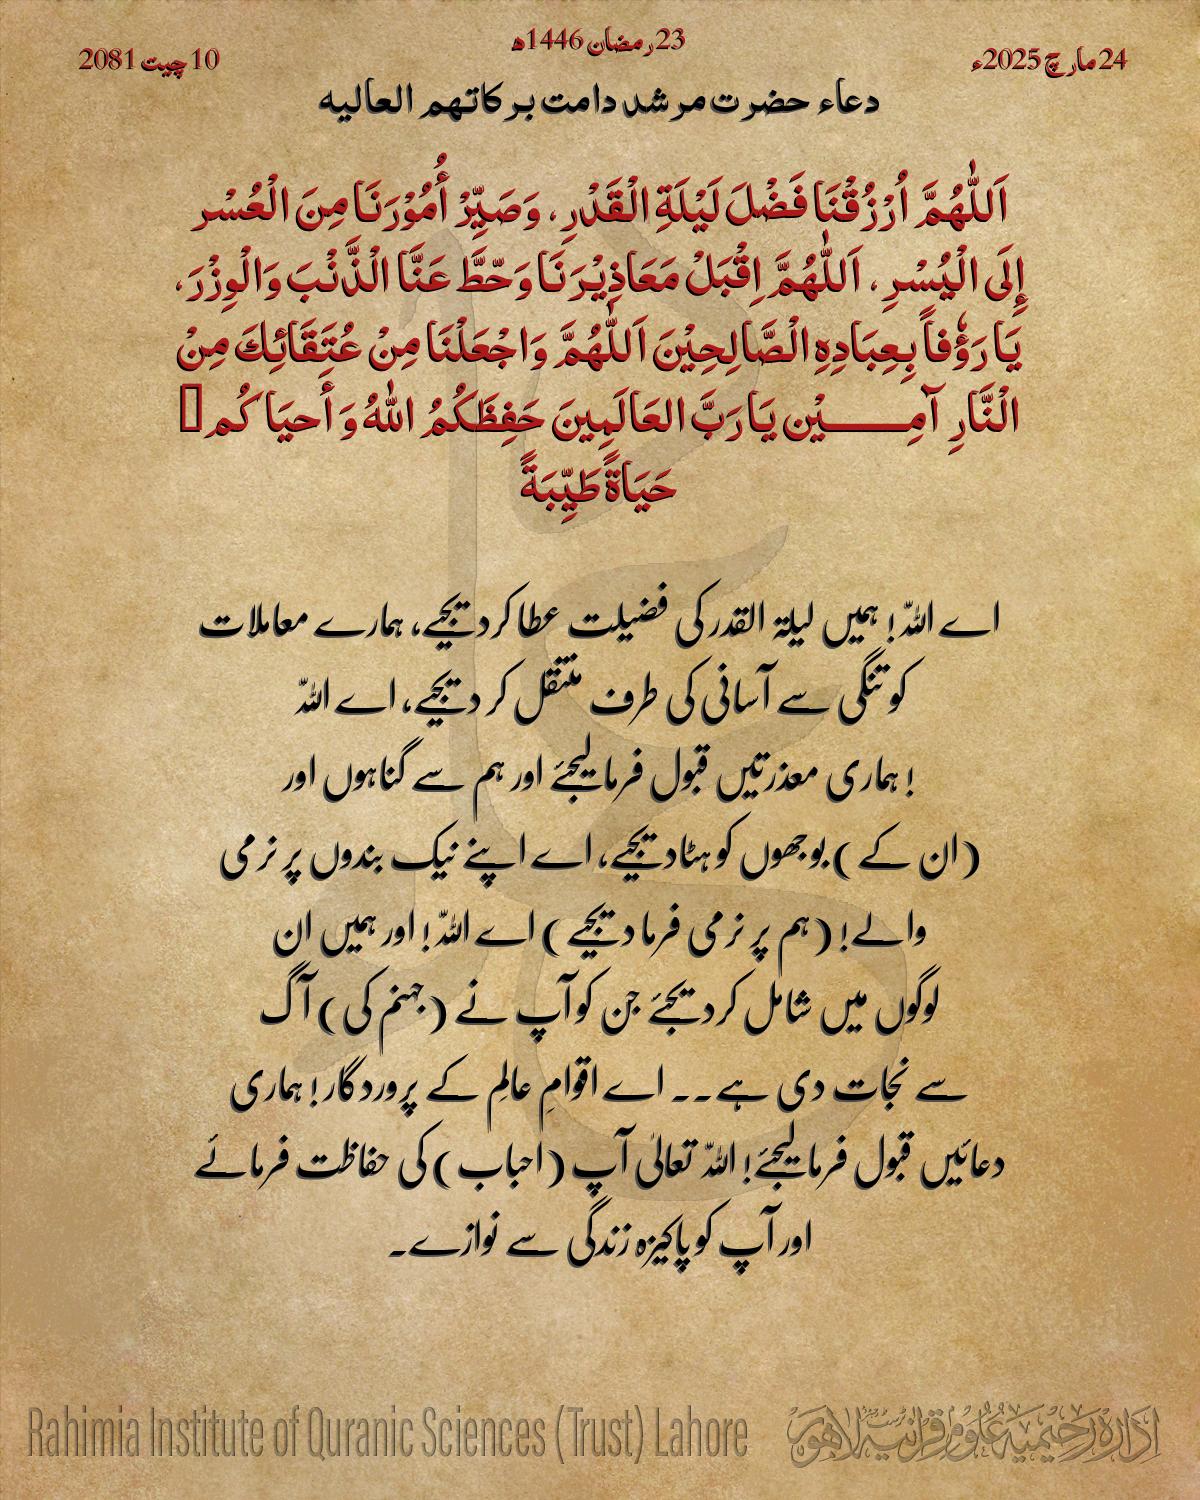 23 رمضان 1446ھ
24 مارچ 2025ء
10 چیت 2081
دعاء حضرت مرشد دامت برکاتهم العالیه
اَللّٰهُمَّ اُرْزُقْنَا فَضْلَ لَيْلَةِ الْقَدْرِ، وَصَيِّرْ أُمُوْرَنَا مِنَ الْعُسْر
إِلَى الْيُسْرِ، اَللّٰهُمَّ اِقْبَلْ مَعَاذِيْرَنَا وَحّطَّ عَنَّا الْذَّنْبَ وَالْوِزْرَ،
يَا رَؤُفاً بِعِبَادِهِ الْصَّالِحِيْنَ اَللّٰهُمَّ وَاجْعَلْنَا مِنْ عُتَقَائِكَ مِنْ
الْنَّارِ آمِـــــيْن يَا رَبَّ العَالَمِينَ حَفِظَكُمُ اللهُ وَ أَحيَا كُم
حَيَاةً طَيِّبَةً
اے اللہ! ہمیں لیلۃ القدر کی فضیلت عطا کردیجیے، ہمارے معاملات
کو تنگی سے آسانی کی طرف منتقل کر دیجیے، اے اللہ
! ہماری معذرتیں قبول فرمالیجئے اور ہم سے گناہوں اور
(ان کے) بوجھوں کو ہٹادیجیے، اے اپنے نیک بندوں پر نرمی
والے! (ہم پر نرمی فرما دیجیے) اے اللہ! اور ہمیں ان
لوگوں میں شامل کردیجئے جن کو آپ نے (جہنم کی) آگ
سے نجات دی ہے۔۔ اے اقوامِ عالم کے پروردگار! ہماری
دعائیں قبول فرمالیجئے! اللہ تعالیٰ آپ (احباب) کی حفاظت فرمائے
اور آپ کو پاکیزہ زندگی سے نوازے۔
Rahimia Institute of Quranic Sciences (Trust) Lahore
ادارہ رحیمیہ علوم قرآنیہ ٹرسٹ لاہور